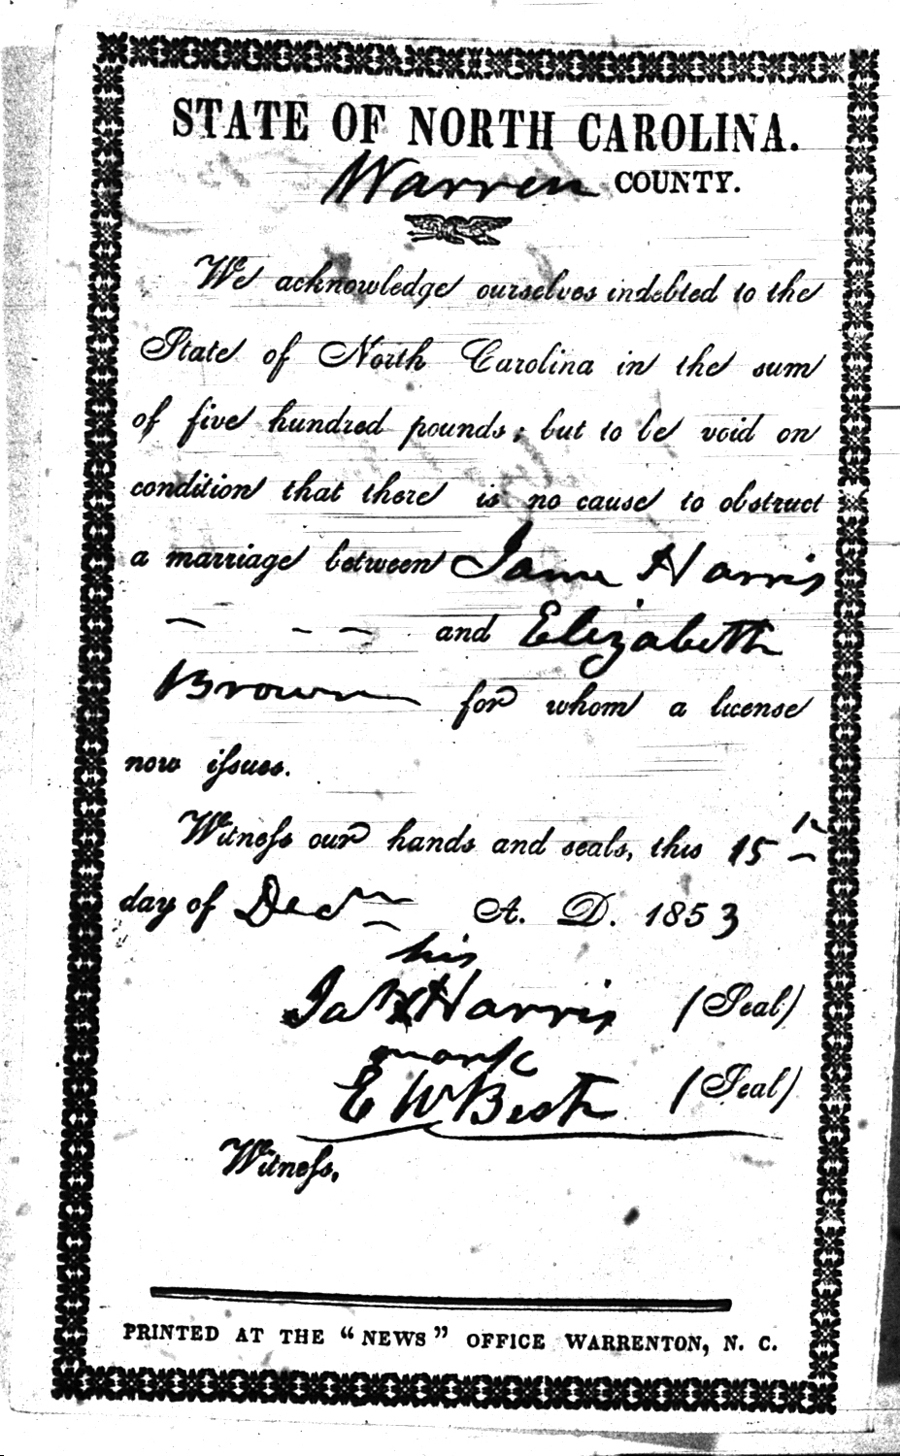 STATE OF NORTH CAROLINA.
Warren COUNTY.
We acknowledge ourselves indebted to the
State of North Carolina in the sum
of five hundred pounds; but to be void on
condition that there is no cause to obstruct
a marriage between Jame Harris
— — — and Elizabeth
Brown for whom a license
now issues.
Witness our hands and seals, this 15th
day of Decr A. D. 1853
his
Jas X Harris (Seal)
mark
E W Best (Seal)
Witness,
PRINTED AT THE “NEWS” OFFICE WARRENTON, N. C.